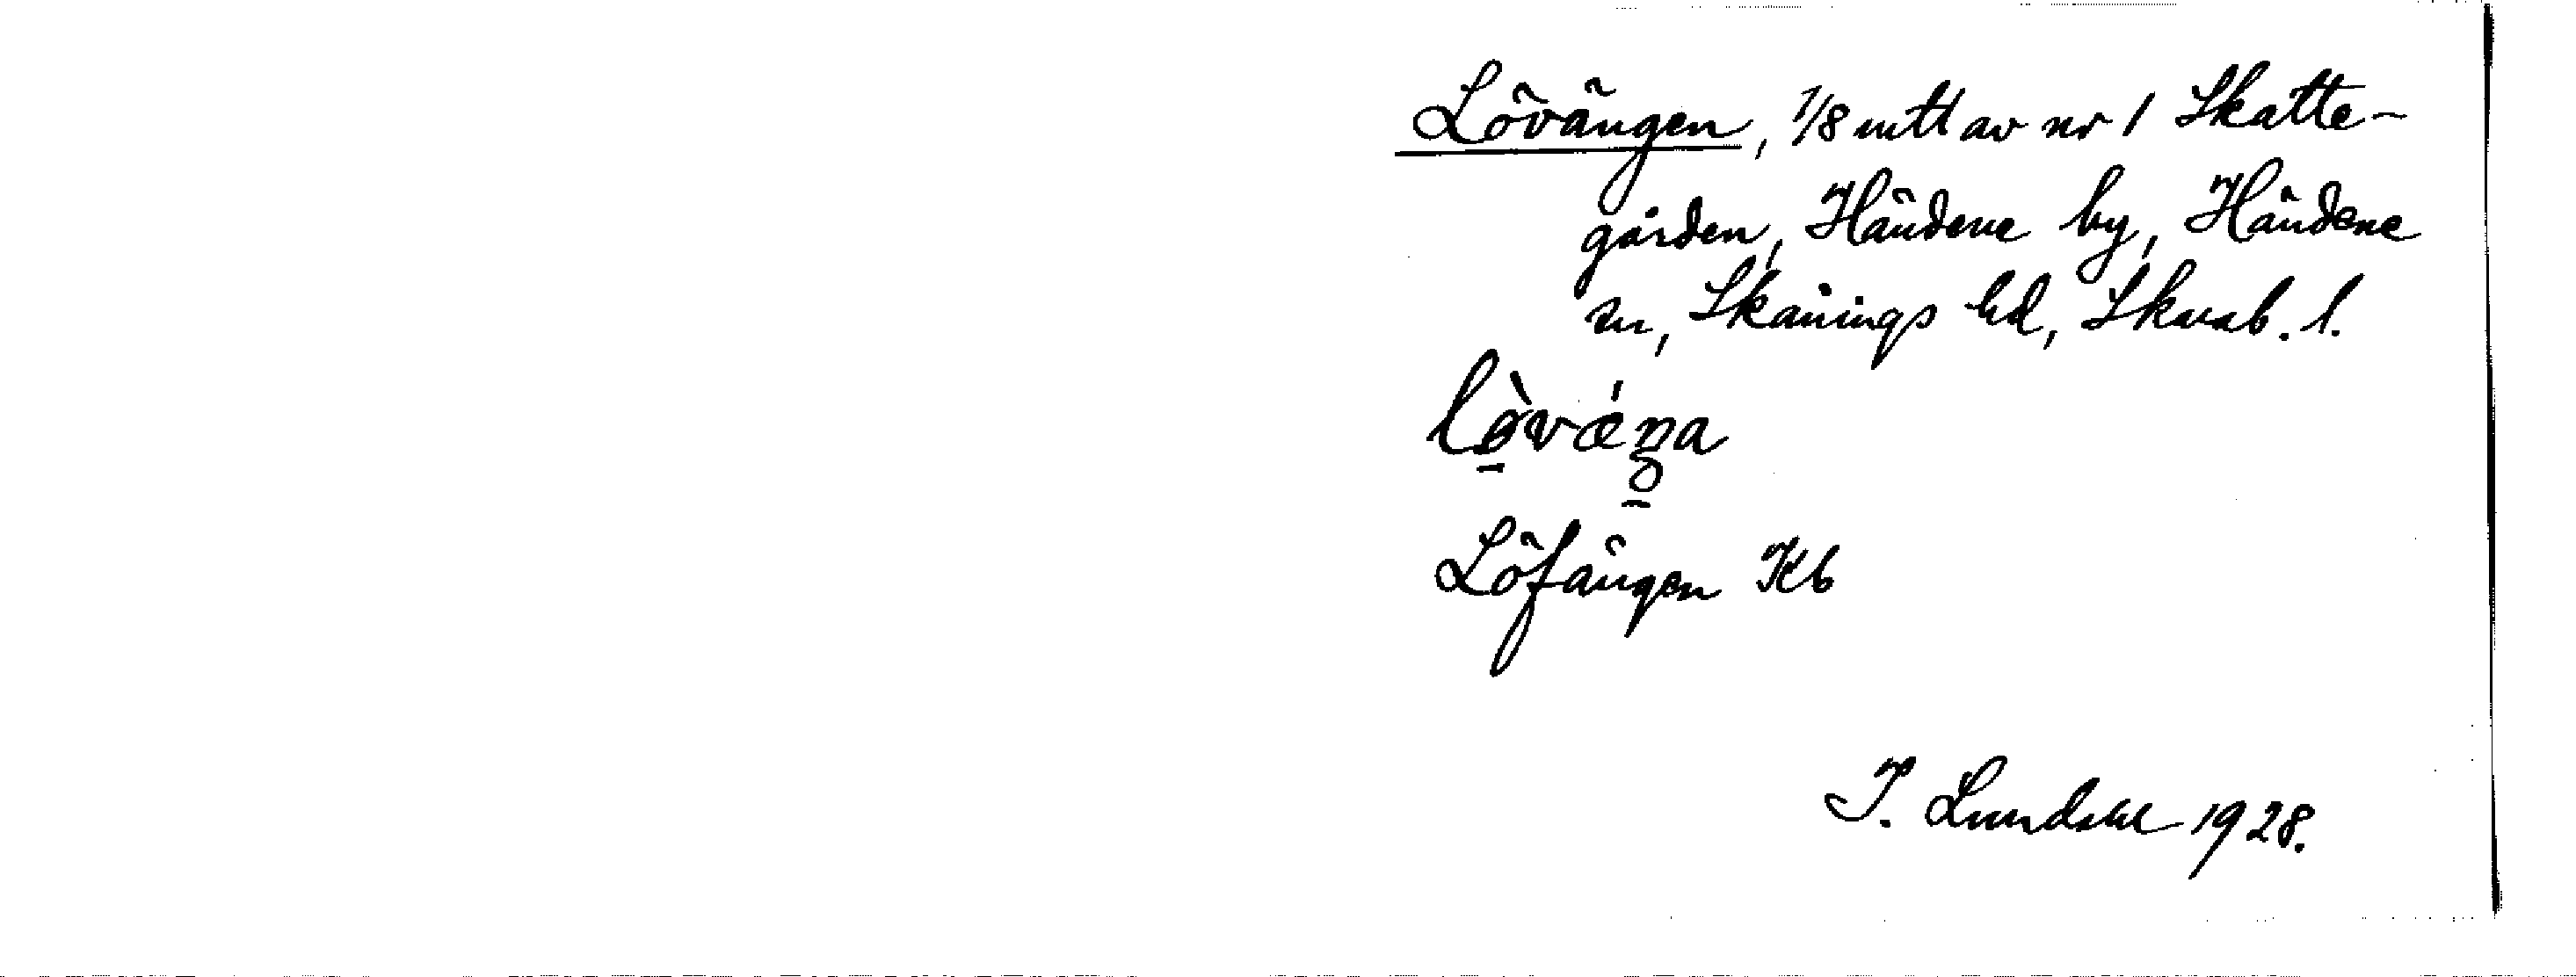 Lövängen, 1/8 mtl av nr 1 Skatte-
gården, Händene by, Händene
sn, Skånings hd, Skarab. l.
lø̀vǽŋa
Löfängen Kb
I. Lundahl 1928.